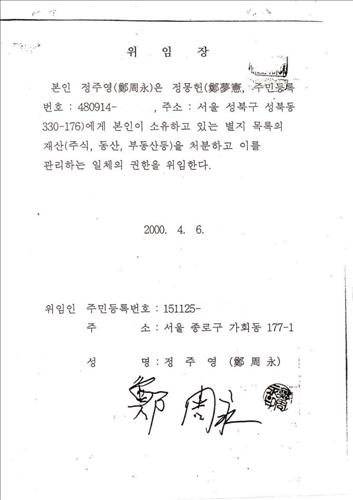 위 임 장
본인 정주영(鄭周永)은 정몽헌(鄭夢憲, 주민등록
번호 : 480914- , 주소 : 서울 성북구 성북동
330-176)에게 본인이 소유하고 있는 별지 목록의
재산(주식, 동산, 부동산등)을 처분하고 이를
관리하는 일체의 권한을 위임한다.
2000. 4. 6.
위임인 주민등록번호 : 151125-
주 소 : 서울 종로구 가회동 177-1
성 명 : 정 주 영 (鄭 周 永)
鄭 周 永